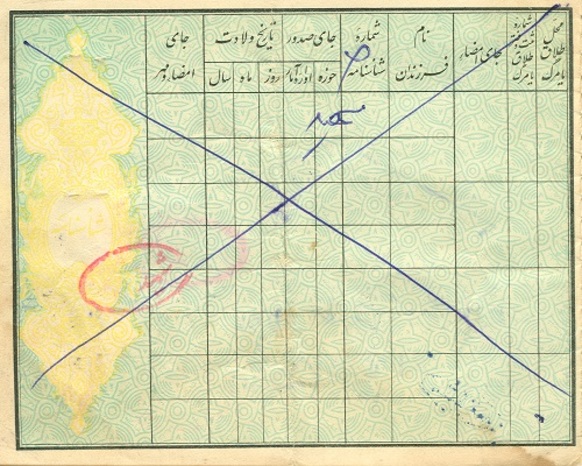 محل طلاق یا مرگ
شماره ثبت و دفتر طلاق یا مرگ
جای امضاء
نام فرزندان
شماره شناسنامه
جای صدور
حوزه
اداره آمار
تاریخ ولادت
روز
ماه
سال
جای امضاء و مهر
شناسنامه